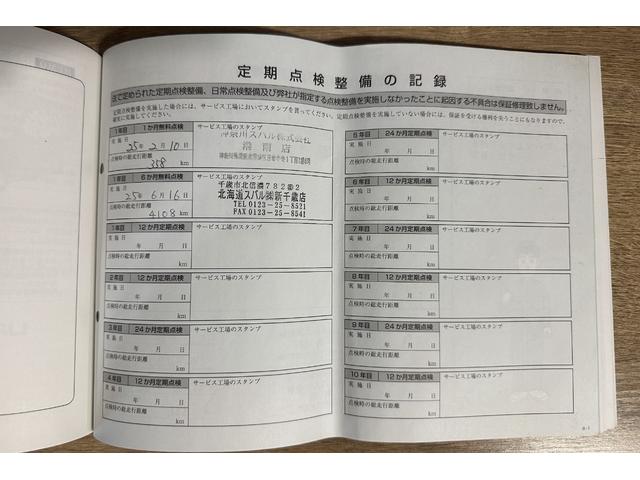 定期点検整備の記録
法で定められた定期点検整備、日常点検整備及び弊社が指定する点検整備を実施しなかったことに起因する不具合は保証修理致しません。
定期点検整備を実施した場合には、サービス工場においてスタンプを貰ってください。定期点検整備を実施していない場合には、保証を受ける権利を失うことにもなりますので、
確実に実施してください。
1年目 1か月無料点検
実施日
25年2月10日
点検時の総走行距離
358 km
サービス工場のスタンプ
神奈川スバル株式会社
湘南店
1年目 6か月無料点検
実施日
25年6月16日
点検時の総走行距離
4108 km
サービス工場のスタンプ
千歳市北信濃782番2
北海道スバル㈱新千歳店
TEL 0123-25-8521
FAX 0123-25-8541
1年目 12か月定期点検
実施日
年 月 日
点検時の総走行距離
km
サービス工場のスタンプ
2年目 12か月定期点検
実施日
年 月 日
点検時の総走行距離
km
サービス工場のスタンプ
3年目 24か月定期点検
実施日
年 月 日
点検時の総走行距離
km
サービス工場のスタンプ
4年目 12か月定期点検
実施日
年 月 日
点検時の総走行距離
km
サービス工場のスタンプ
5年目 24か月定期点検
実施日
年 月 日
点検時の総走行距離
km
サービス工場のスタンプ
6年目 12か月定期点検
実施日
年 月 日
点検時の総走行距離
km
サービス工場のスタンプ
7年目 24か月定期点検
実施日
年 月 日
点検時の総走行距離
km
サービス工場のスタンプ
8年目 12か月定期点検
実施日
年 月 日
点検時の総走行距離
km
サービス工場のスタンプ
9年目 24か月定期点検
実施日
年 月 日
点検時の総走行距離
km
サービス工場のスタンプ
10年目 12か月定期点検
実施日
年 月 日
点検時の総走行距離
km
サービス工場のスタンプ